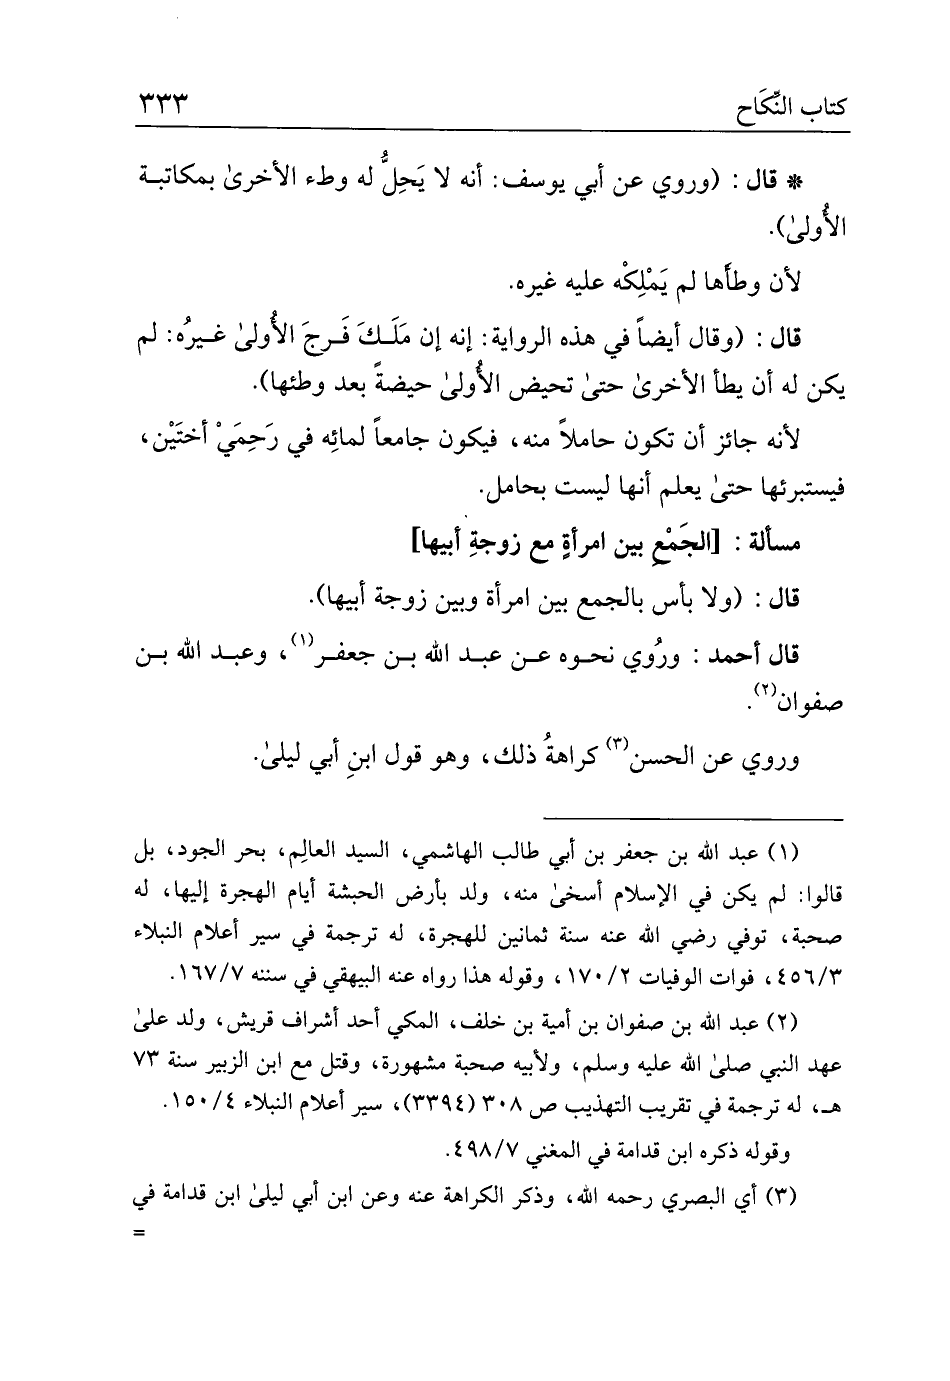 كتاب النِّكَاح ٣٣٣
* قال : (وروي عن أبي يوسف: أنه لا يَحِلُّ له وطء الأخرىٰ بمكاتبة
الأُولىٰ).
لأن وطأَها لم يَمْلِكْه عليه غيره.
قال : (وقال أيضاً في هذه الرواية: إنه إن مَلَكَ فَرجَ الأُولىٰ غيرُه: لم
يكن له أن يطأ الأخرىٰ حتىٰ تحيض الأُولىٰ حيضةً بعد وطئها).
لأنه جائز أن تكون حاملاً منه، فيكون جامعاً لمائِه في رَحِمَيْ أختَيْن،
فيستبرئها حتىٰ يعلم أنها ليست بحامل.
مسألة : [الجَمْع بين امرأةٍ مع زوجةِ أبيها]
قال : (ولا بأس بالجمع بين امرأة وبين زوجة أبيها).
قال أحمد : ورُوي نحوه عن عبد الله بن جعفر(١)، وعبد الله بن
صفوان(٢).
وروي عن الحسن(٣) كراهةُ ذلك، وهو قول ابنِ أبي ليلىٰ.
(١) عبد الله بن جعفر بن أبي طالب الهاشمي، السيد العالِم، بحر الجود، بل
قالوا: لم يكن في الإسلام أسخىٰ منه، ولد بأرض الحبشة أيام الهجرة إليها، له
صحبة، توفي رضي الله عنه سنة ثمانين للهجرة، له ترجمة في سير أعلام النبلاء
٤٥٦/٣، فوات الوفيات ١٧٠/٢، وقوله هذا رواه عنه البيهقي في سننه ١٦٧/٧.
(٢) عبد الله بن صفوان بن أمية بن خلف، المكي أحد أشراف قريش، ولد علىٰ
عهد النبي صلىٰ الله عليه وسلم، ولأبيه صحبة مشهورة، وقتل مع ابن الزبير سنة ٧٣
هـ، له ترجمة في تقريب التهذيب ص ٣٠٨ (٣٣٩٤)، سير أعلام النبلاء ١٥٠/٤.
وقوله ذكره ابن قدامة في المغني ٤٩٨/٧.
(٣) أي البصري رحمه الله، وذكر الكراهة عنه وعن ابن أبي ليلىٰ ابن قدامة في
=